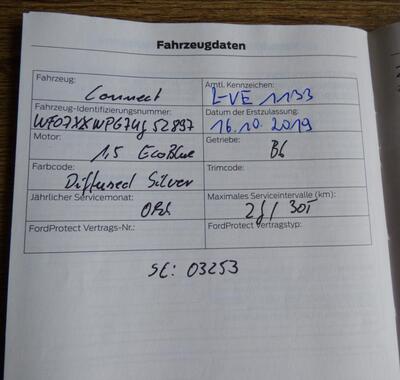 Fahrzeugdaten
Fahrzeug:
Connect
Amtl. Kennzeichen:
L-VE 1133
Fahrzeug-Identifizierungsnummer:
WF07XXWPG7 52897
Datum der Erstzulassung:
16.10.2019
Motor:
1,5 EcoBlue
Getriebe:
B6
Farbcode:
Diffused Silver
Trimcode:
Jährlicher Servicemonat:
Okt
Maximales Serviceintervalle (km):
2J / 30T
FordProtect Vertrags-Nr.:
FordProtect Vertragstyp:
SC: 03253